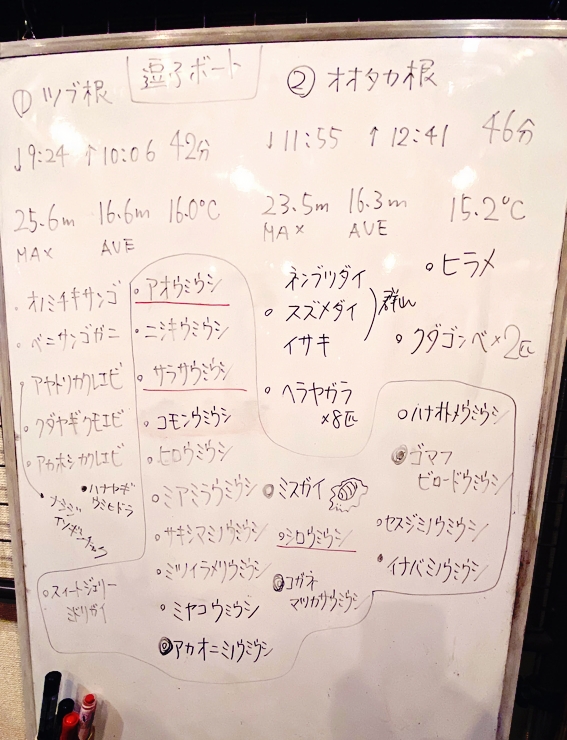 逗子ボート
① ツブ根
↓9:24 ↑10:06 42分
25.6m 16.6m 16.0℃
MAX AVE
② オオタカ根
↓11:55 ↑12:41 46分
23.5m 16.3m 15.2℃
MAX AVE
オノミチキサンゴ
ベニサンゴガニ
アヤトリカクレエビ
クダヤギクモエビ
アカホシカクレエビ
ハナヤギ
ウミヒドラ
スイートジェリー
ミドリガイ
アオウミウシ
ニシキウミウシ
サラサウミウシ
コモンウミウシ
ヒロウミウシ
ミアミラウミウシ
サキシマミノウミウシ
ミツイラメリウミウシ
ミヤコウミウシ
アカオニミノウミウシ
ネンブツダイ
スズメダイ 群れ
イサキ
ヘラヤガラ
×8匹
ヒラメ
クダゴンベ×2匹
ミスガイ
シロウミウシ
コガネ
マツカサウミウシ
ハナオトメウミウシ
ゴマフ
ビロードウミウシ
セスジミノウミウシ
イナバミノウミウシ